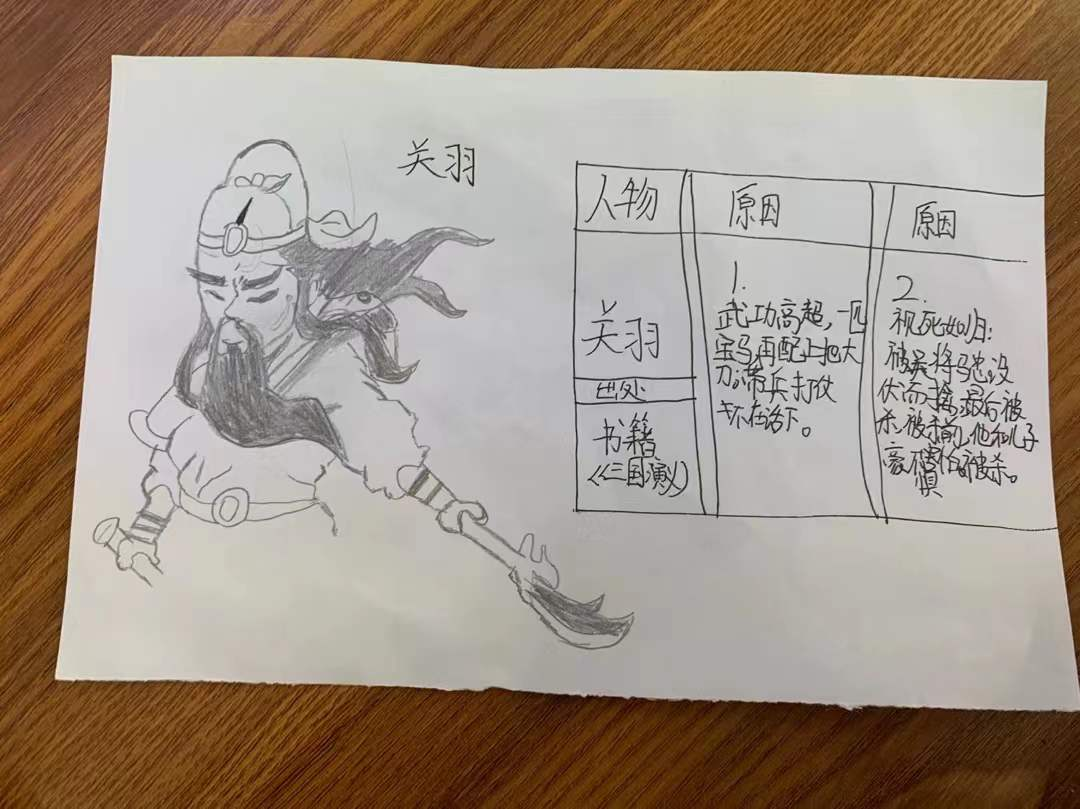 关羽
人物
原因
原因
关羽
出处
书籍
《三国演义》
1.
武功高超,一匹
宝马,再配上把大
刀,带兵打仗
不在话下。
2.
视死如归:
被吴将马忠设
伏而擒,最后被
杀,被擒,他和儿子
豪不惧怕被杀。